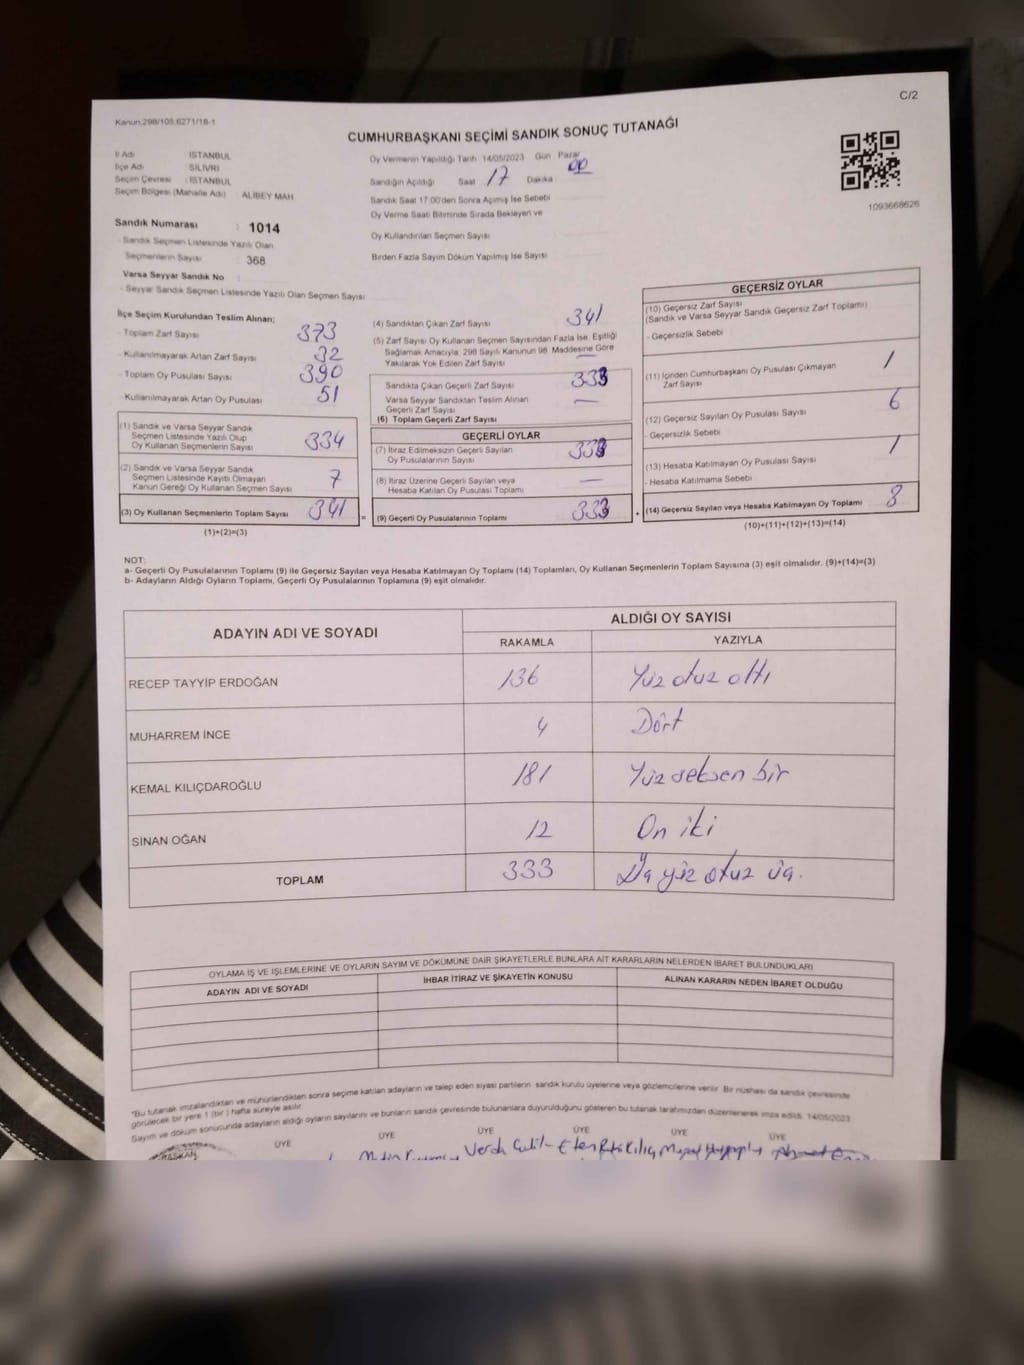 C/2
Kanun:298/105,6271/18-1
CUMHURBAŞKANI SEÇİMİ SANDIK SONUÇ TUTANAĞI
İl Adı İSTANBUL
İlçe Adı SİLİVRİ
Seçim Çevresi : İSTANBUL
Seçim Bölgesi (Mahalle Adı) ALİBEY MAH.
Oy Vermenin Yapıldığı Tarih 14/05/2023 Gün Pazar
Sandığın Açıldığı Saat 17 Dakika 00
Sandık Saat 17:00'den Sonra Açılmış İse Sebebi
Oy Verme Saati Bitiminde Sırada Bekleyen ve
Oy Kullandırılan Seçmen Sayısı
Birden Fazla Sayım Döküm Yapılmış İse Sayısı
1093668626
Sandık Numarası : 1014
- Sandık Seçmen Listesinde Yazılı Olan
Seçmenlerin Sayısı 368
Varsa Seyyar Sandık No
- Seyyar Sandık Seçmen Listesinde Yazılı Olan Seçmen Sayısı
İlçe Seçim Kurulundan Teslim Alınan;
- Toplam Zarf Sayısı 373
- Kullanılmayarak Artan Zarf Sayısı 32
- Toplam Oy Pusulası Sayısı 390
- Kullanılmayarak Artan Oy Pusulası 51
(1) Sandık ve Varsa Seyyar Sandık
Seçmen Listesinde Yazılı Olup
Oy Kullanan Seçmenlerin Sayısı 334
(2) Sandık ve Varsa Seyyar Sandık
Seçmen Listesinde Kayıtlı Olmayan
Kanun Gereği Oy Kullanan Seçmen Sayısı 7
(3) Oy Kullanan Seçmenlerin Toplam Sayısı 341 =
(1)+(2)=(3)
(4) Sandıktan Çıkan Zarf Sayısı 341
(5) Zarf Sayısı Oy Kullanan Seçmen Sayısından Fazla İse, Eşitliği
Sağlamak Amacıyla, 298 Sayılı Kanunun 98. Maddesine Göre
Yakılarak Yok Edilen Zarf Sayısı —
Sandıkta Çıkan Geçerli Zarf Sayısı 333
Varsa Seyyar Sandıktan Teslim Alınan
Geçerli Zarf Sayısı —
(6) Toplam Geçerli Zarf Sayısı
GEÇERLİ OYLAR
(7) İtiraz Edilmeksizin Geçerli Sayılan
Oy Pusulalarının Sayısı 333
(8) İtiraz Üzerine Geçerli Sayılan veya
Hesaba Katılan Oy Pusulası Toplamı —
(9) Geçerli Oy Pusulalarının Toplamı 333 +
GEÇERSİZ OYLAR
(10) Geçersiz Zarf Sayısı
(Sandık ve Varsa Seyyar Sandık Geçersiz Zarf Toplamı)
- Geçersizlik Sebebi
(11) İçinden Cumhurbaşkanı Oy Pusulası Çıkmayan
Zarf Sayısı 1
(12) Geçersiz Sayılan Oy Pusulası Sayısı 6
- Geçersizlik Sebebi
(13) Hesaba Katılmayan Oy Pusulası Sayısı 1
- Hesaba Katılmama Sebebi
(14) Geçersiz Sayılan veya Hesaba Katılmayan Oy Toplamı 8
(10)+(11)+(12)+(13)=(14)
NOT:
a- Geçerli Oy Pusulalarının Toplamı (9) ile Geçersiz Sayılan veya Hesaba Katılmayan Oy Toplamı (14) Toplamları, Oy Kullanan Seçmenlerin Toplam Sayısına (3) eşit olmalıdır. (9)+(14)=(3)
b- Adayların Aldığı Oyların Toplamı, Geçerli Oy Pusulalarının Toplamına (9) eşit olmalıdır.
ADAYIN ADI VE SOYADI ALDIĞI OY SAYISI
RAKAMLA YAZIYLA
RECEP TAYYİP ERDOĞAN 136 Yüz otuz altı
MUHARREM İNCE 4 Dört
KEMAL KILIÇDAROĞLU 181 Yüz seksen bir
SİNAN OĞAN 12 On iki
TOPLAM 333 Üç yüz otuz üç.
OYLAMA İŞ VE İŞLEMLERİNE VE OYLARIN SAYIM VE DÖKÜMÜNE DAİR ŞİKAYETLERLE BUNLARA AİT KARARLARIN NELERDEN İBARET BULUNDUKLARI
ADAYIN ADI VE SOYADI İHBAR İTİRAZ VE ŞİKAYETİN KONUSU ALINAN KARARIN NEDEN İBARET OLDUĞU
"Bu tutanak imzalandıktan ve mühürlendikten sonra seçime katılan adayların ve talep eden siyasi partilerin sandık kurulu üyelerine veya gözlemcilerine verilir. Bir nüshası da sandık çevresinde
görülecek bir yere 1 (bir) hafta süreyle asılır.
Sayım ve döküm sonucunda adayların aldığı oyların sayılarını ve bunların sandık çevresinde bulunanlara duyurulduğunu gösteren bu tutanak tarafımızdan düzenlenerek imza edildi. 14/05/2023
BAŞKAN ÜYE ÜYE ÜYE ÜYE ÜYE ÜYE